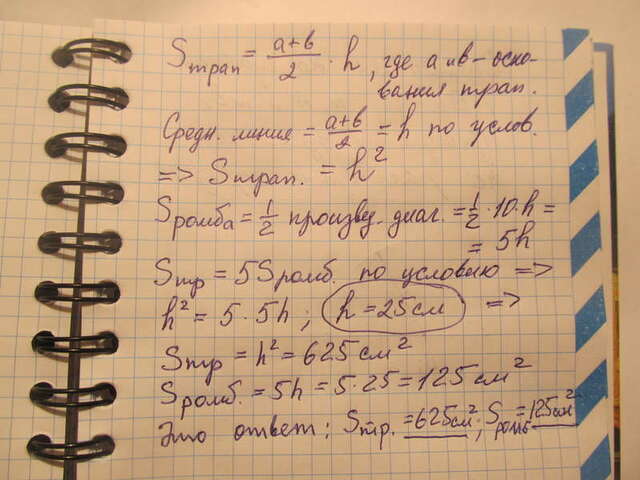 Sтрап = a+b/2 · h, где a и b - осно-
вания трап.
Средн. линия = a+b/2 = h по услов.
=> Sтрап. = h²
Sромба = 1/2 произвед. диаг. = 1/2 · 10 · h =
= 5h
Sтр = 5Sромб. по условию =>
h² = 5 · 5h ; h = 25см =>
Sтр = h² = 625см²
Sромб. = 5h = 5 · 25 = 125см²
Это ответ: Sтр. = 625см²; Sромб = 125см²